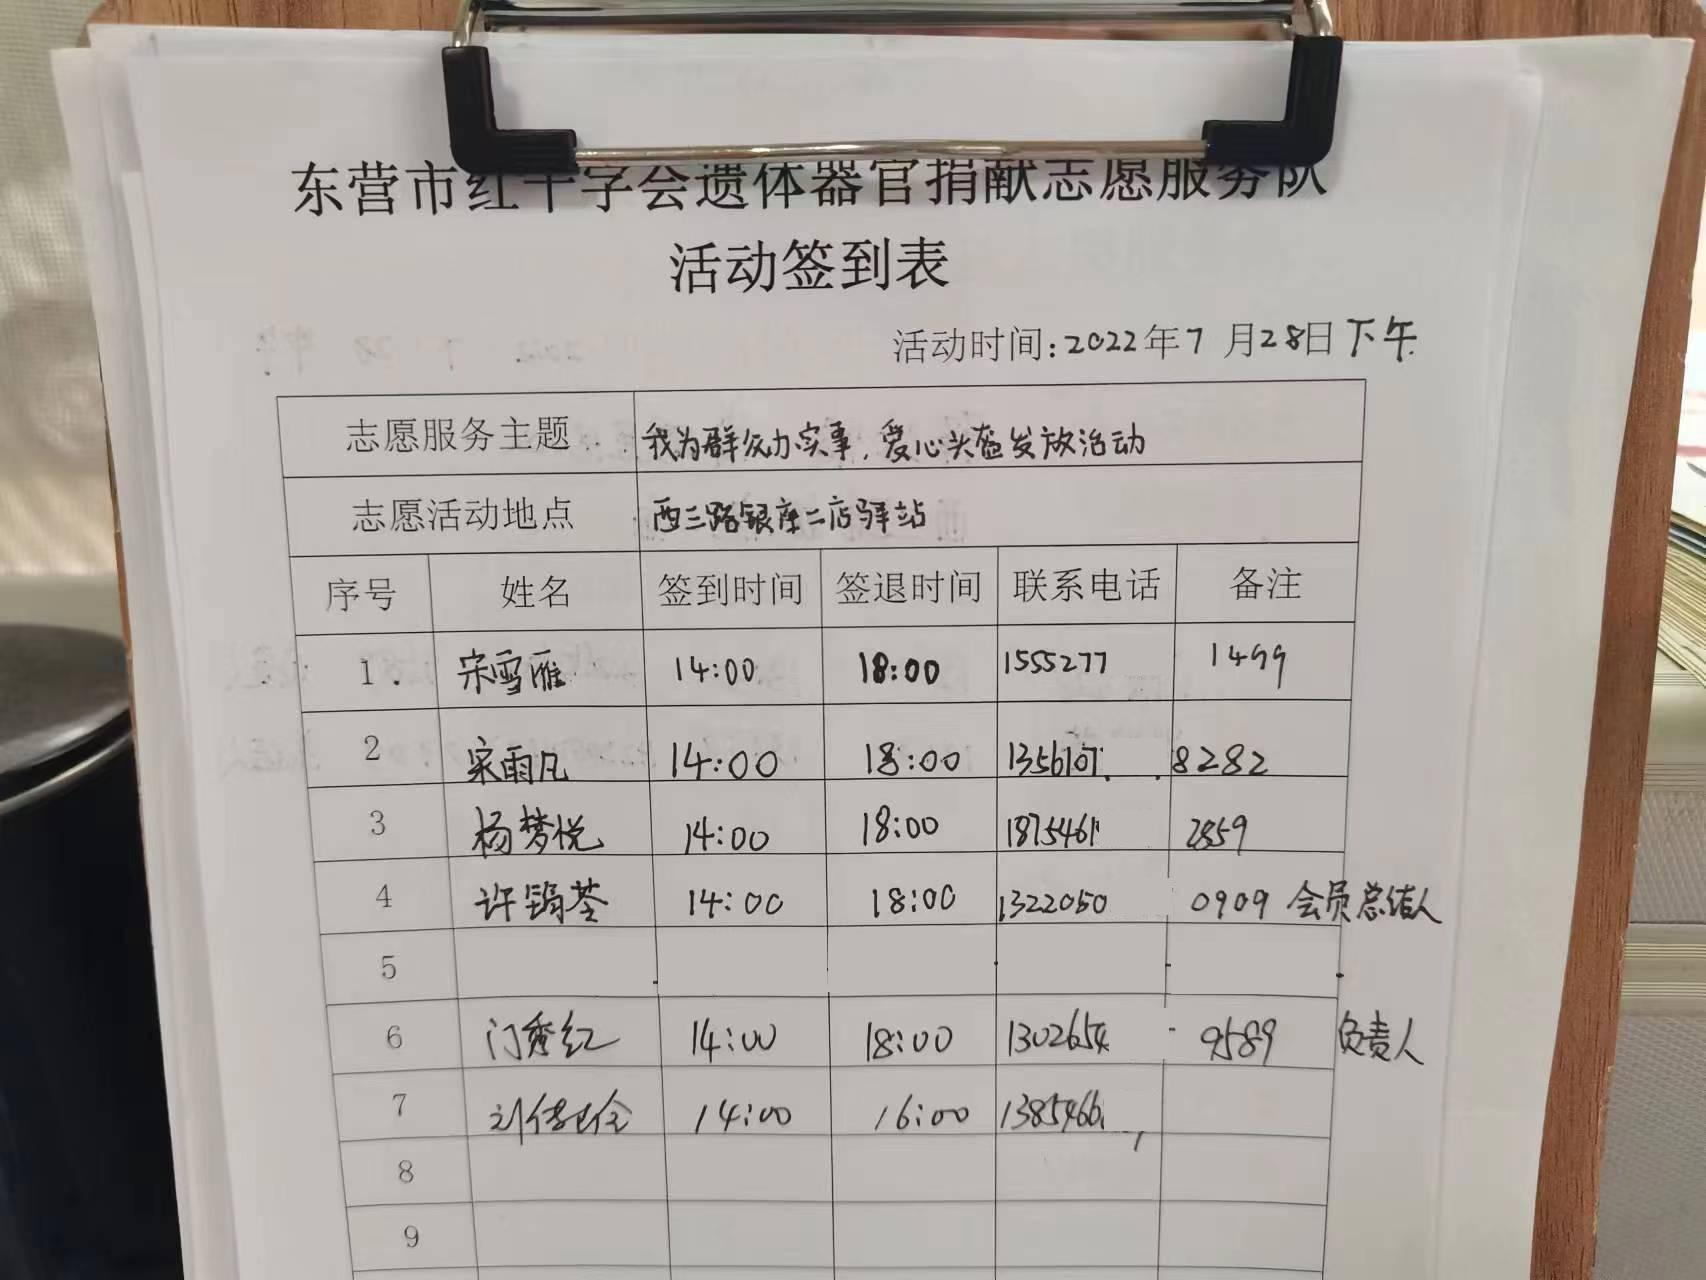 东营市红十字会遗体器官捐献志愿服务队
活动签到表
活动时间:2022年7月28日下午
志愿服务主题 我为群众办实事,爱心头盔发放活动
志愿活动地点 西三路银座二店驿站
序号 姓名 签到时间 签退时间 联系电话 备注
1. 宋雪雁 14:00 18:00 1555277 1499
2 宋雨凡 14:00 18:00 1356107 8282
3 杨梦悦 14:00 18:00 1875461 2859
4 许锦荃 14:00 18:00 1322050 0909 会员总结人
5
6 门秀红 14:00 18:00 1302654 9589 负责人
7 14:00 16:00 1385466
8
9